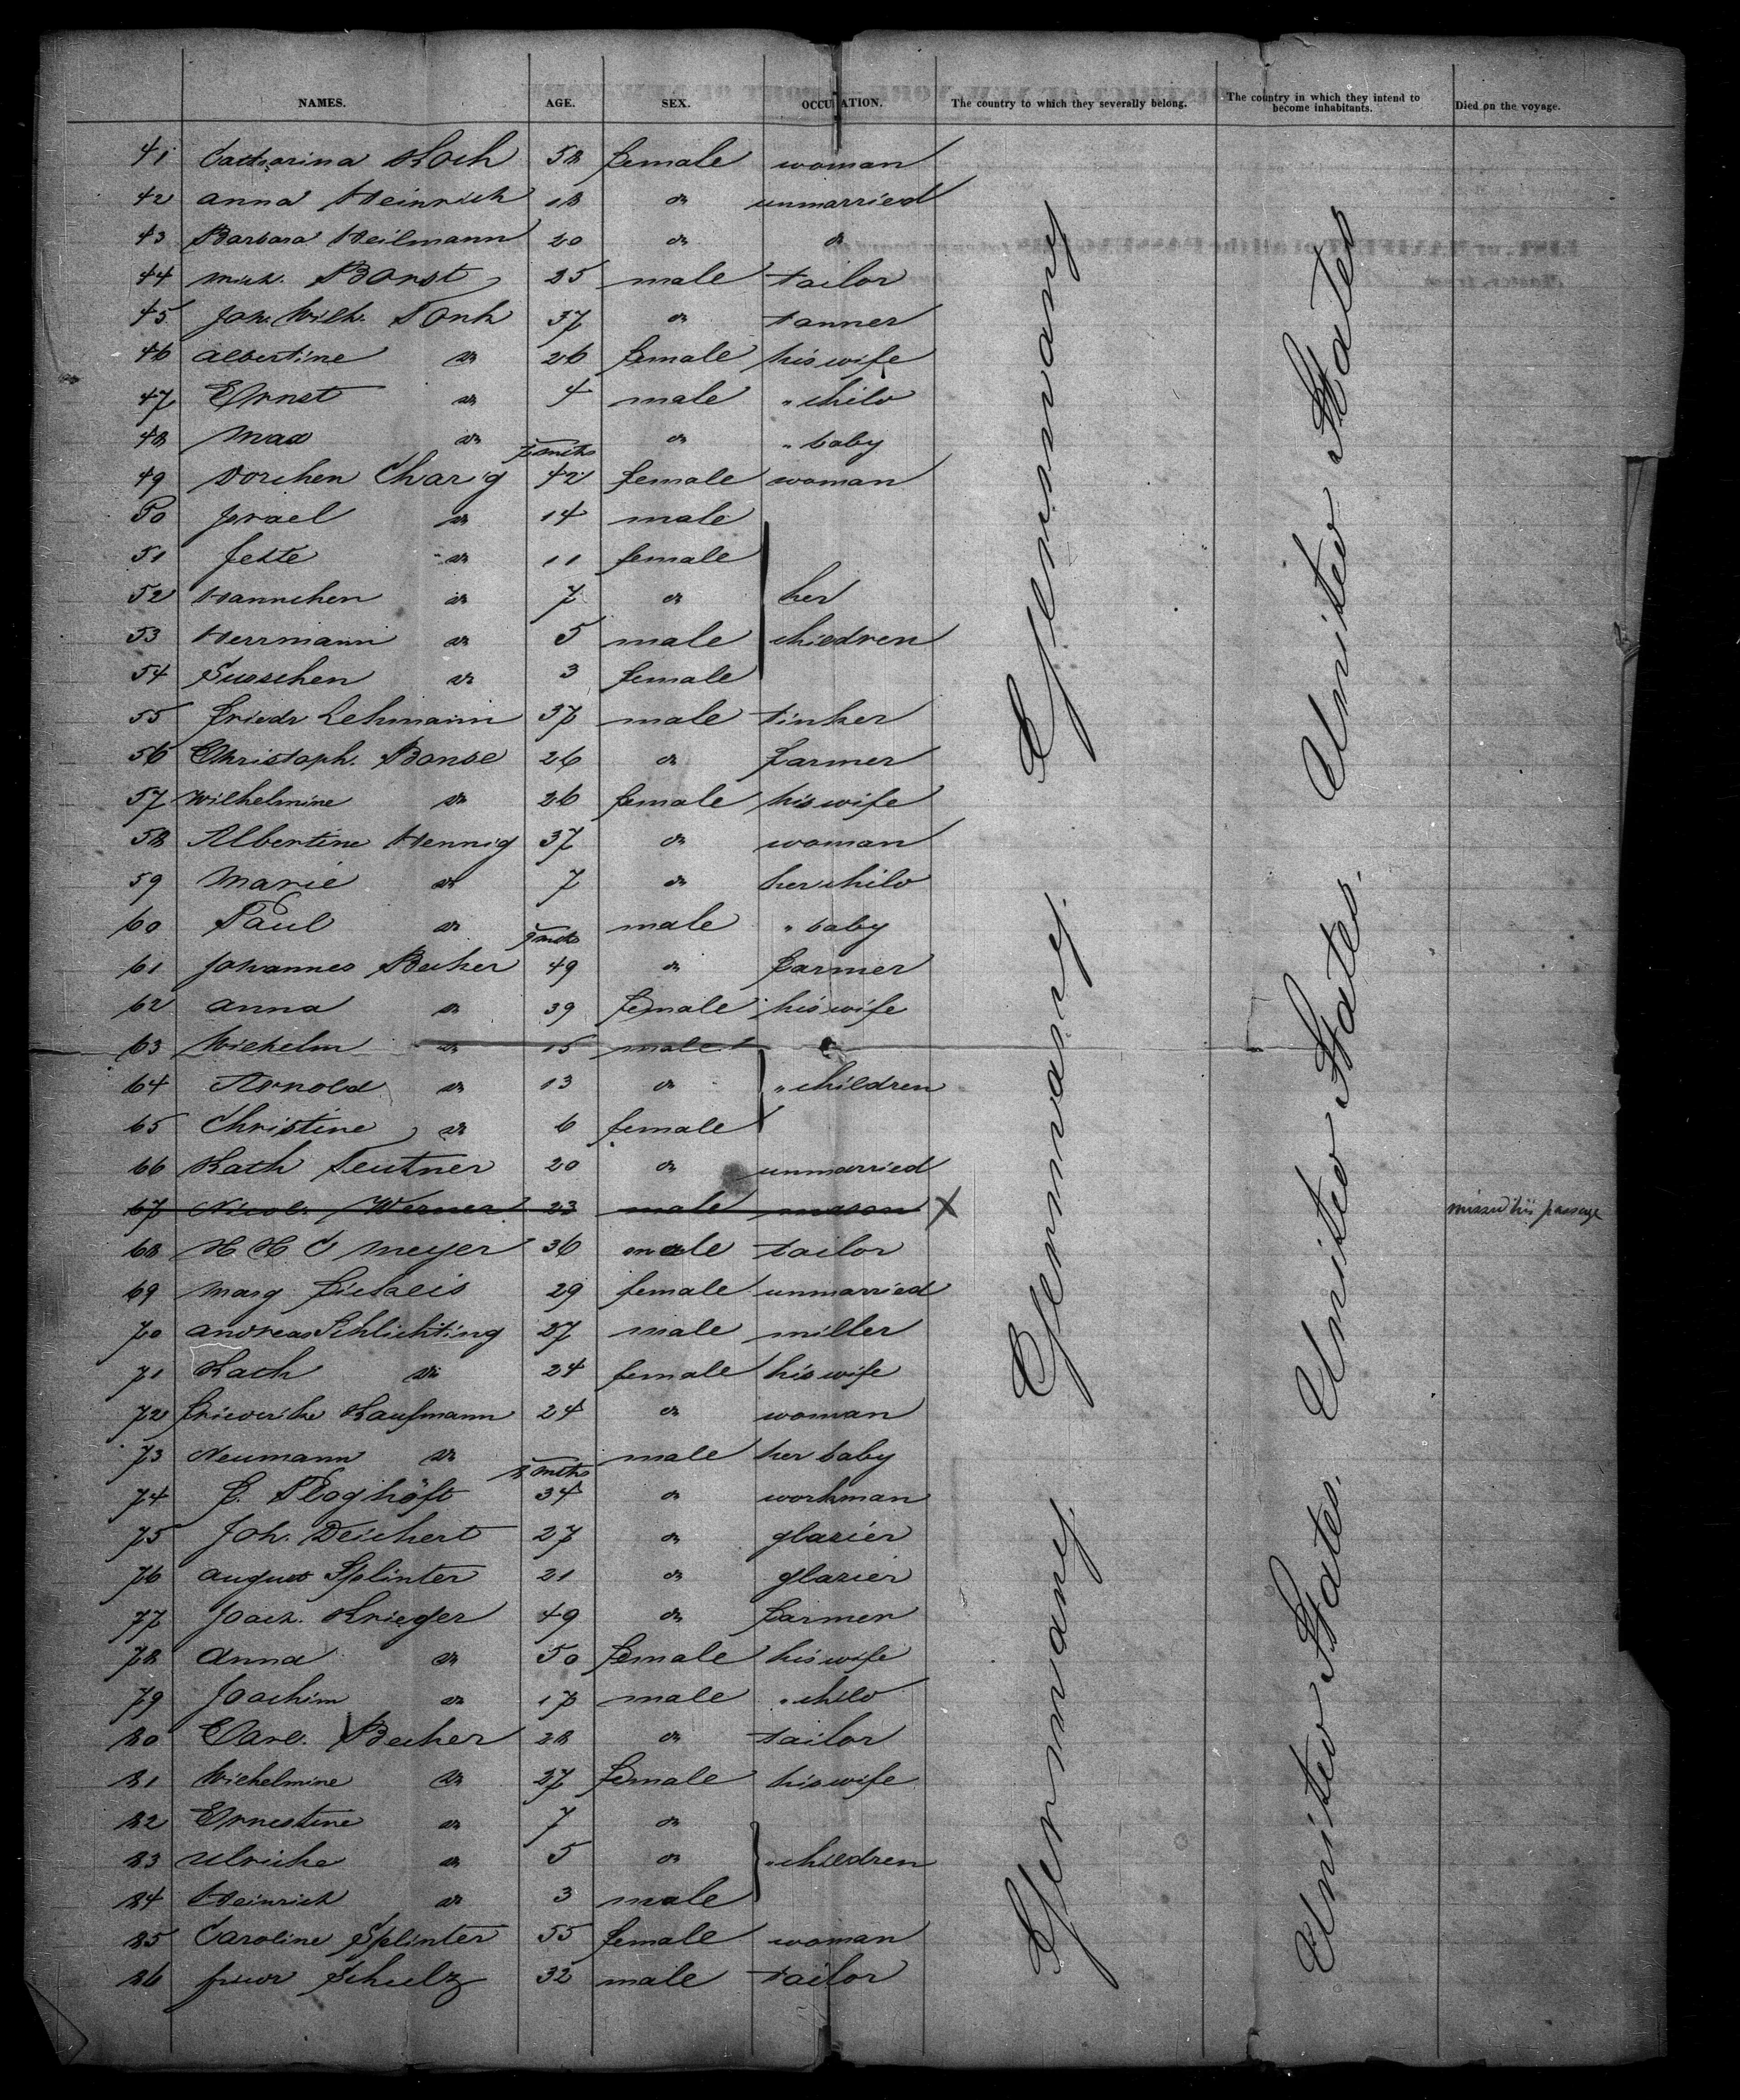 NAMES. AGE. SEX. OCCUPATION. The country to which they severally belong. The country in which they intend to become inhabitants. Died on the voyage.
41 Catharina Koch 58 female woman
42 Anna Heinrich 18 do unmarried
43 Barbara Heilmann 20 do do
44 Mich. Borst 25 male tailor
45 Joh. Wilh. Tonk 37 do tanner
46 Albertine do 26 female his wife
47 Ernst do 4 male " child
48 Max do 7 mths do " baby
49 Dorchen Charig 42 female woman
50 Israel do 14 male
51 Jette do 11 female
52 Hannchen do 7 do her
53 Herrmann do 5 male children
54 Susschen do 3 female
55 Friedr Lehmann 37 male tinker
56 Christoph. Bonse 26 do farmer
57 Wilhelmine do 26 female his wife
58 Albertine Hennig 37 do woman
59 Marie do 7 do her child
60 Paul do 9 mths male " baby
61 Johannes Becker 49 do farmer
62 Anna do 39 female his wife
63 Wilhelm do 15 male
64 Arnold do 13 do " children
65 Christine do 6 female
66 Kath Teutner 20 do unmarried
67 Nicol. Werner 23 male mason X missed his passage
68 H H C Meyer 36 male tailor
69 Marg 29 female unmarried
70 Andreas Schlichting 27 male miller
71 Kath do 24 female his wife
72 Friederike Kaufmann 24 do woman
73 Neumann do 8 mths male her baby
74 F. Ploghöft 34 do workman
75 Joh. Deichert 27 do glazier
76 August Splinter 21 do glazier
77 Joach. Krieger 49 do farmer
78 Anna do 50 female his wife
79 Joachim do 17 male " child
80 Carl Becker 28 do tailor
81 Wilhelmine do 27 female his wife
82 Ernestine do 7 do
83 Ulricke do 5 do " children
84 Heinrich do 3 male
85 Caroline Splinter 55 female woman
86 Friedr Schulz 32 male tailor
Germany Germany. Germany. Germany.
United States United States. United States. United States.